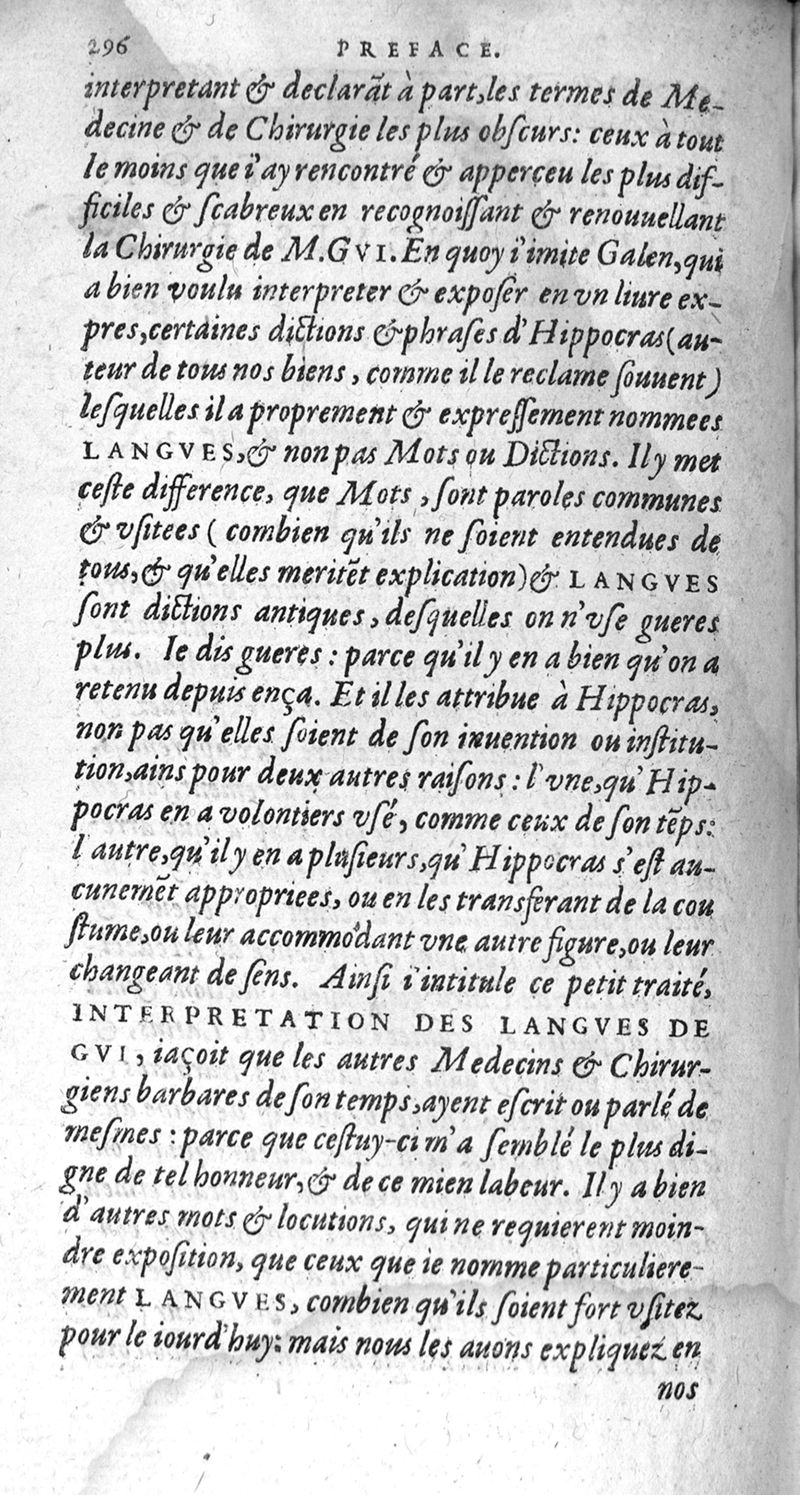 296 PREFACE.
interpretant & declarãt à part,les termes de Me-
decine & de Chirurgie les plus obſcurs: ceux à tout
le moins que i'ay rencontré & apperceu les plus dif-
ficiles & ſcabreux en recognoiſſant & renouuellant
la Chirurgie de M.GVI. En quoy i'imite Galen,qui
a bien voulu interpreter & expoſer en vn liure ex-
pres,certaines dictions & phraſes d'Hippocras(au-
teur de tous nos biens, comme il le reclame ſouuent)
leſquelles il a proprement & expreſſement nommees
LANGVES,& non pas Mots ou Dictions. Il y met
ceſte difference, que Mots, ſont paroles communes
& vſitees ( combien qu'ils ne ſoient entendues de
tous,& qu'elles meritẽt explication)& LANGVES
ſont dictions antiques, deſquelles on n'vſe gueres
plus. Ie dis gueres : parce qu'il y en a bien qu'on a
retenu depuis ença. Et il les attribue à Hippocras,
non pas qu'elles ſoient de ſon inuention ou inſtitu-
tion,ains pour deux autres raiſons : l'vne,qu'Hip-
pocras en a volontiers vſé, comme ceux de ſon tẽps:
l'autre,qu'il y en a pluſieurs,qu'Hippocras s'eſt au-
cunemẽt appropriees, ou en les transferant de la cou
ſtume,ou leur accommodant vne autre figure,ou leur
changeant de ſens. Ainſi i'intitule ce petit traité,
INTERPRETATION DES LANGVES DE
GVI, iaçoit que les autres Medecins & Chirur-
giens barbares de ſon temps,ayent eſcrit ou parlé de
meſmes : parce que ceſtuy-ci m'a ſemblé le plus di-
gne de tel honneur,& de ce mien labeur. Il y a bien
d'autres mots & locutions, qui ne requierent moin-
dre expoſition, que ceux que ie nomme particuliere-
ment LANGVES, combien qu'ils ſoient fort vſitez
pour le iourd'huy: mais nous les auons expliquez en
nos